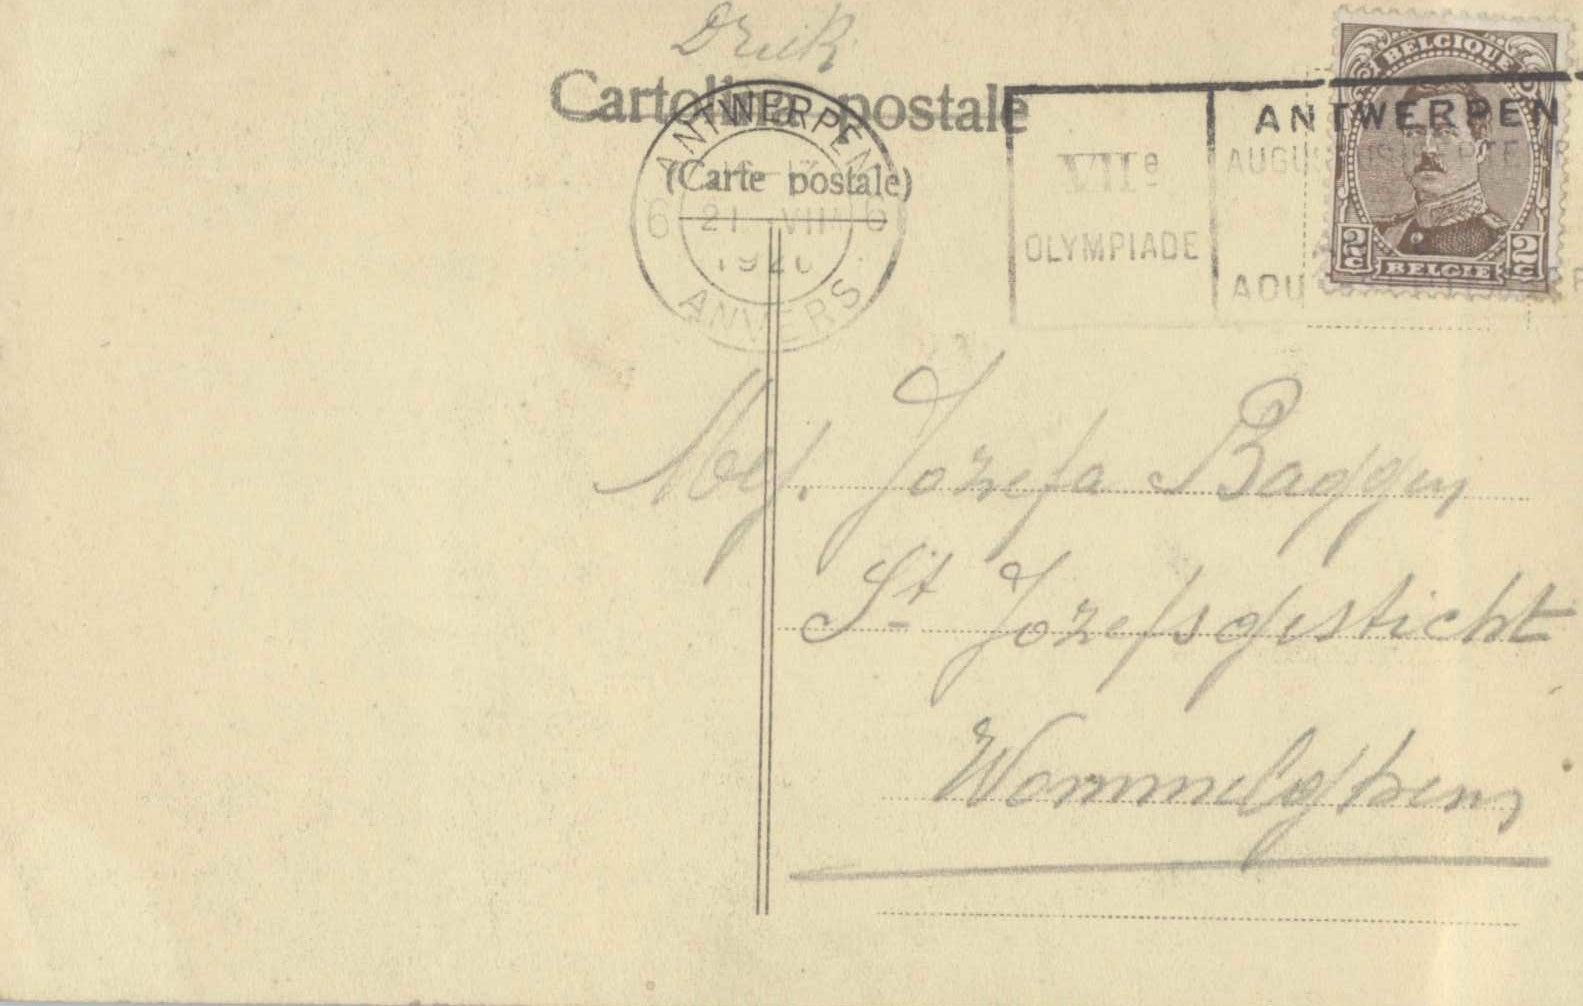 Druk
Cartolina postale
(Carte postale)
ANTWERPEN
6 21 VII 6
1920
ANVERS
VIIe
OLYMPIADE
ANTWERPEN
AUGUSTUS SEPTEMBER
AOU
BELGIQUE
2c 2c
BELGIE
Mej. Jozefa Baggen
St Jozefsgesticht
Wommelghem